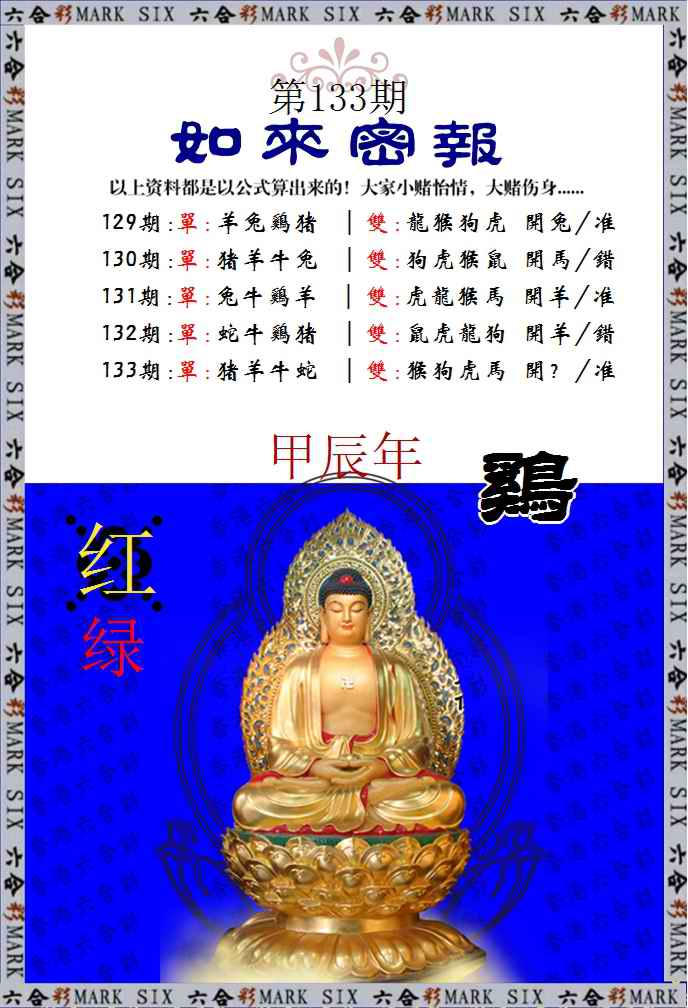 六合彩MARK SIX 六合彩MARK SIX 六合彩MARK SIX 六合彩MARK
第133期
如來密報
以上资料都是以公式算出来的！大家小赌怡情，大赌伤身......
129期:單:羊兔鷄猪 | 雙:龍猴狗虎 開兔/准
130期:單:猪羊牛兔 | 雙:狗虎猴鼠 開馬/錯
131期:單:兔牛鷄羊 | 雙:虎龍猴馬 開羊/准
132期:單:蛇牛鷄猪 | 雙:鼠虎龍狗 開羊/錯
133期:單:猪羊牛蛇 | 雙:猴狗虎馬 開?/准
甲辰年
鷄
红
绿
六合彩MARK SIX 六合彩MARK SIX 六合彩MARK SIX 六合彩MARK